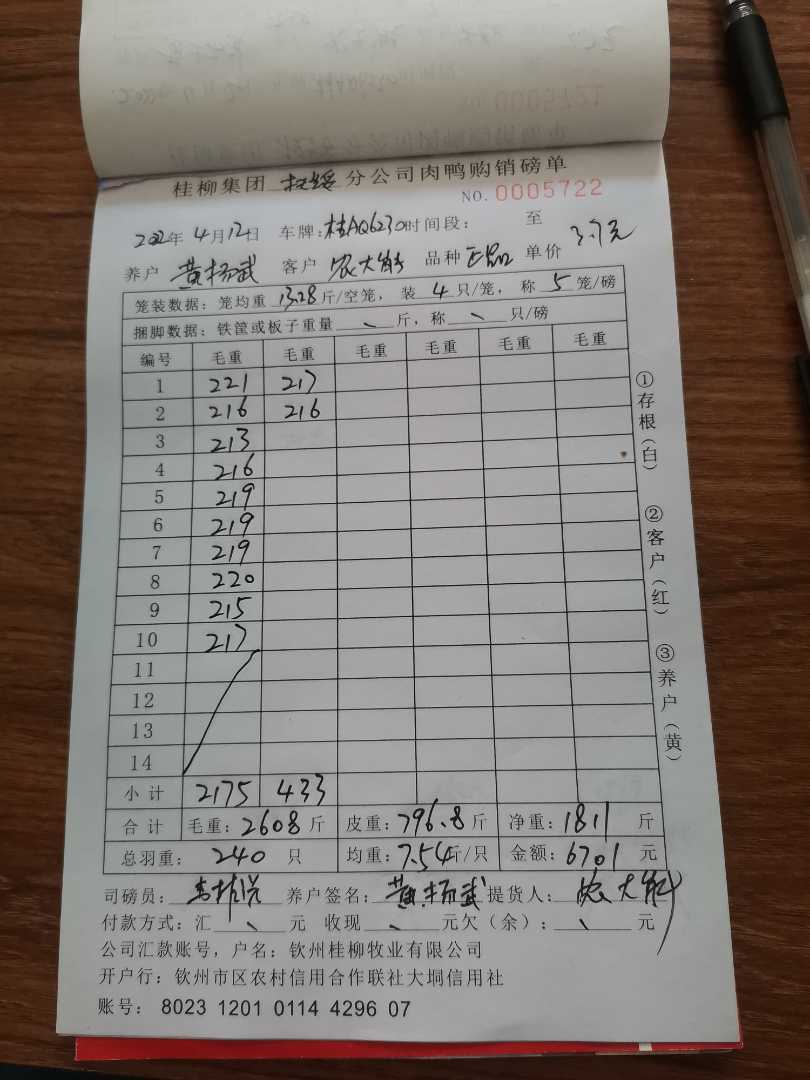 桂柳集团 分公司肉鸭购销磅单
NO. 0005722
202 年 4月12日 车牌:桂AQ6230 时间段: 至
养户 黄杨武 客户 农大 品种 正品 单价 3.7元
笼装数据: 笼均重 13.28 斤/空笼, 装 4 只/笼, 称 5 笼/磅
捆脚数据: 铁筐或板子重量 斤, 称 只/磅
编号 毛重 毛重 毛重 毛重 毛重 毛重
1 221 217
2 216 216
3 213
4 216
5 219
6 219
7 219
8 220
9 215
10 217
11
12
13
14
小计 2175 433
合计 毛重: 2608 斤 皮重: 796.8 斤 净重: 1811 斤
总羽重: 240 只 均重: 7.54 斤/只 金额: 6701 元
司磅员: 养户签名: 黄杨武 提货人: 农大
付款方式: 汇 元 收现 元欠(余): 元
公司汇款账号, 户名: 钦州桂柳牧业有限公司
开户行: 钦州市区农村信用合作联社大垌信用社
账号: 8023 1201 0114 4296 07
①存根(白)
②客户(红)
③养户(黄)